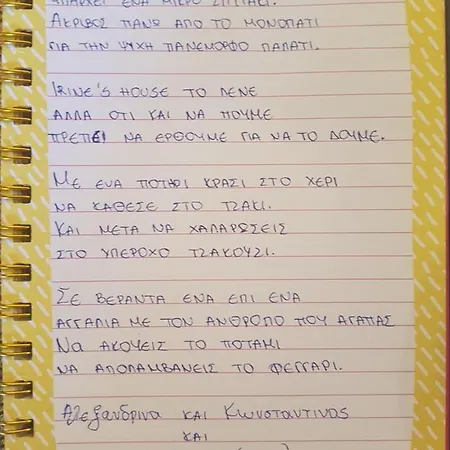 ΥΠΑΡΧΕΙ ΕΝΑ ΜΙΚΡΟ ΣΠΙΤΑΚΙ.
ΑΚΡΙΒΩΣ ΠΑΝΩ ΑΠΟ ΤΟ ΜΟΝΟΠΑΤΙ
ΓΙΑ ΤΗΝ ΨΥΧΗ ΠΑΝΕΜΟΡΦΟ ΠΑΛΑΤΙ.
IRINE'S HOUSE ΤΟ ΛΕΝΕ
ΑΛΛΑ ΟΤΙ ΚΑΙ ΝΑ ΠΟΥΜΕ
ΠΡΕΠΕΙ ΝΑ ΕΡΘΟΥΜΕ ΓΙΑ ΝΑ ΤΟ ΔΟΥΜΕ.
ΜΕ ΕΝΑ ΠΟΤΗΡΙ ΚΡΑΣΙ ΣΤΟ ΧΕΡΙ
ΝΑ ΚΑΘΕΣΕ ΣΤΟ ΤΖΑΚΙ.
ΚΑΙ ΜΕΤΑ ΝΑ ΧΑΛΑΡΩΣΕΙΣ
ΣΤΟ ΥΠΕΡΟΧΟ ΤΖΑΚΟΥΖΙ.
ΣΕ ΒΕΡΑΝΤΑ ΕΝΑ ΕΠΙ ΕΝΑ
ΑΓΓΑΛΙΑ ΜΕ ΤΟΝ ΑΝΘΡΟΠΟ ΠΟΥ ΑΓΑΠΑΣ
ΝΑ ΑΚΟΥΕΙΣ ΤΟ ΠΟΤΑΜΙ
ΝΑ ΑΠΟΛΑΜΒΑΝΕΙΣ ΤΟ ΦΕΓΓΑΡΙ.
Αλεξανδρινα και Κωνσταντινος
και